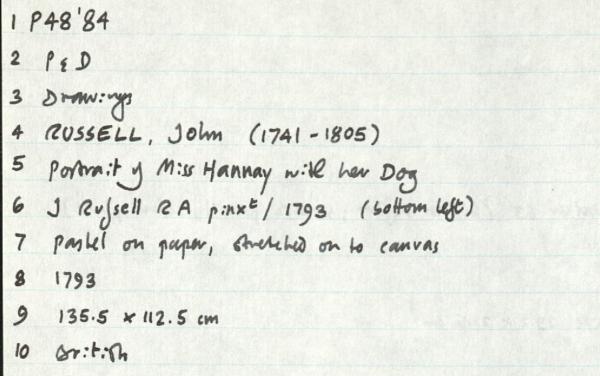 1 P48'84
2 P & D
3 Drawings
4 RUSSELL, John (1741-1805)
5 Portrait of Miss Hannay with her Dog
6 J Russell RA pinxt / 1793 (bottom left)
7 Pastel on paper, stretched on to canvas
8 1793
9 135.5 x 112.5 cm
10 British